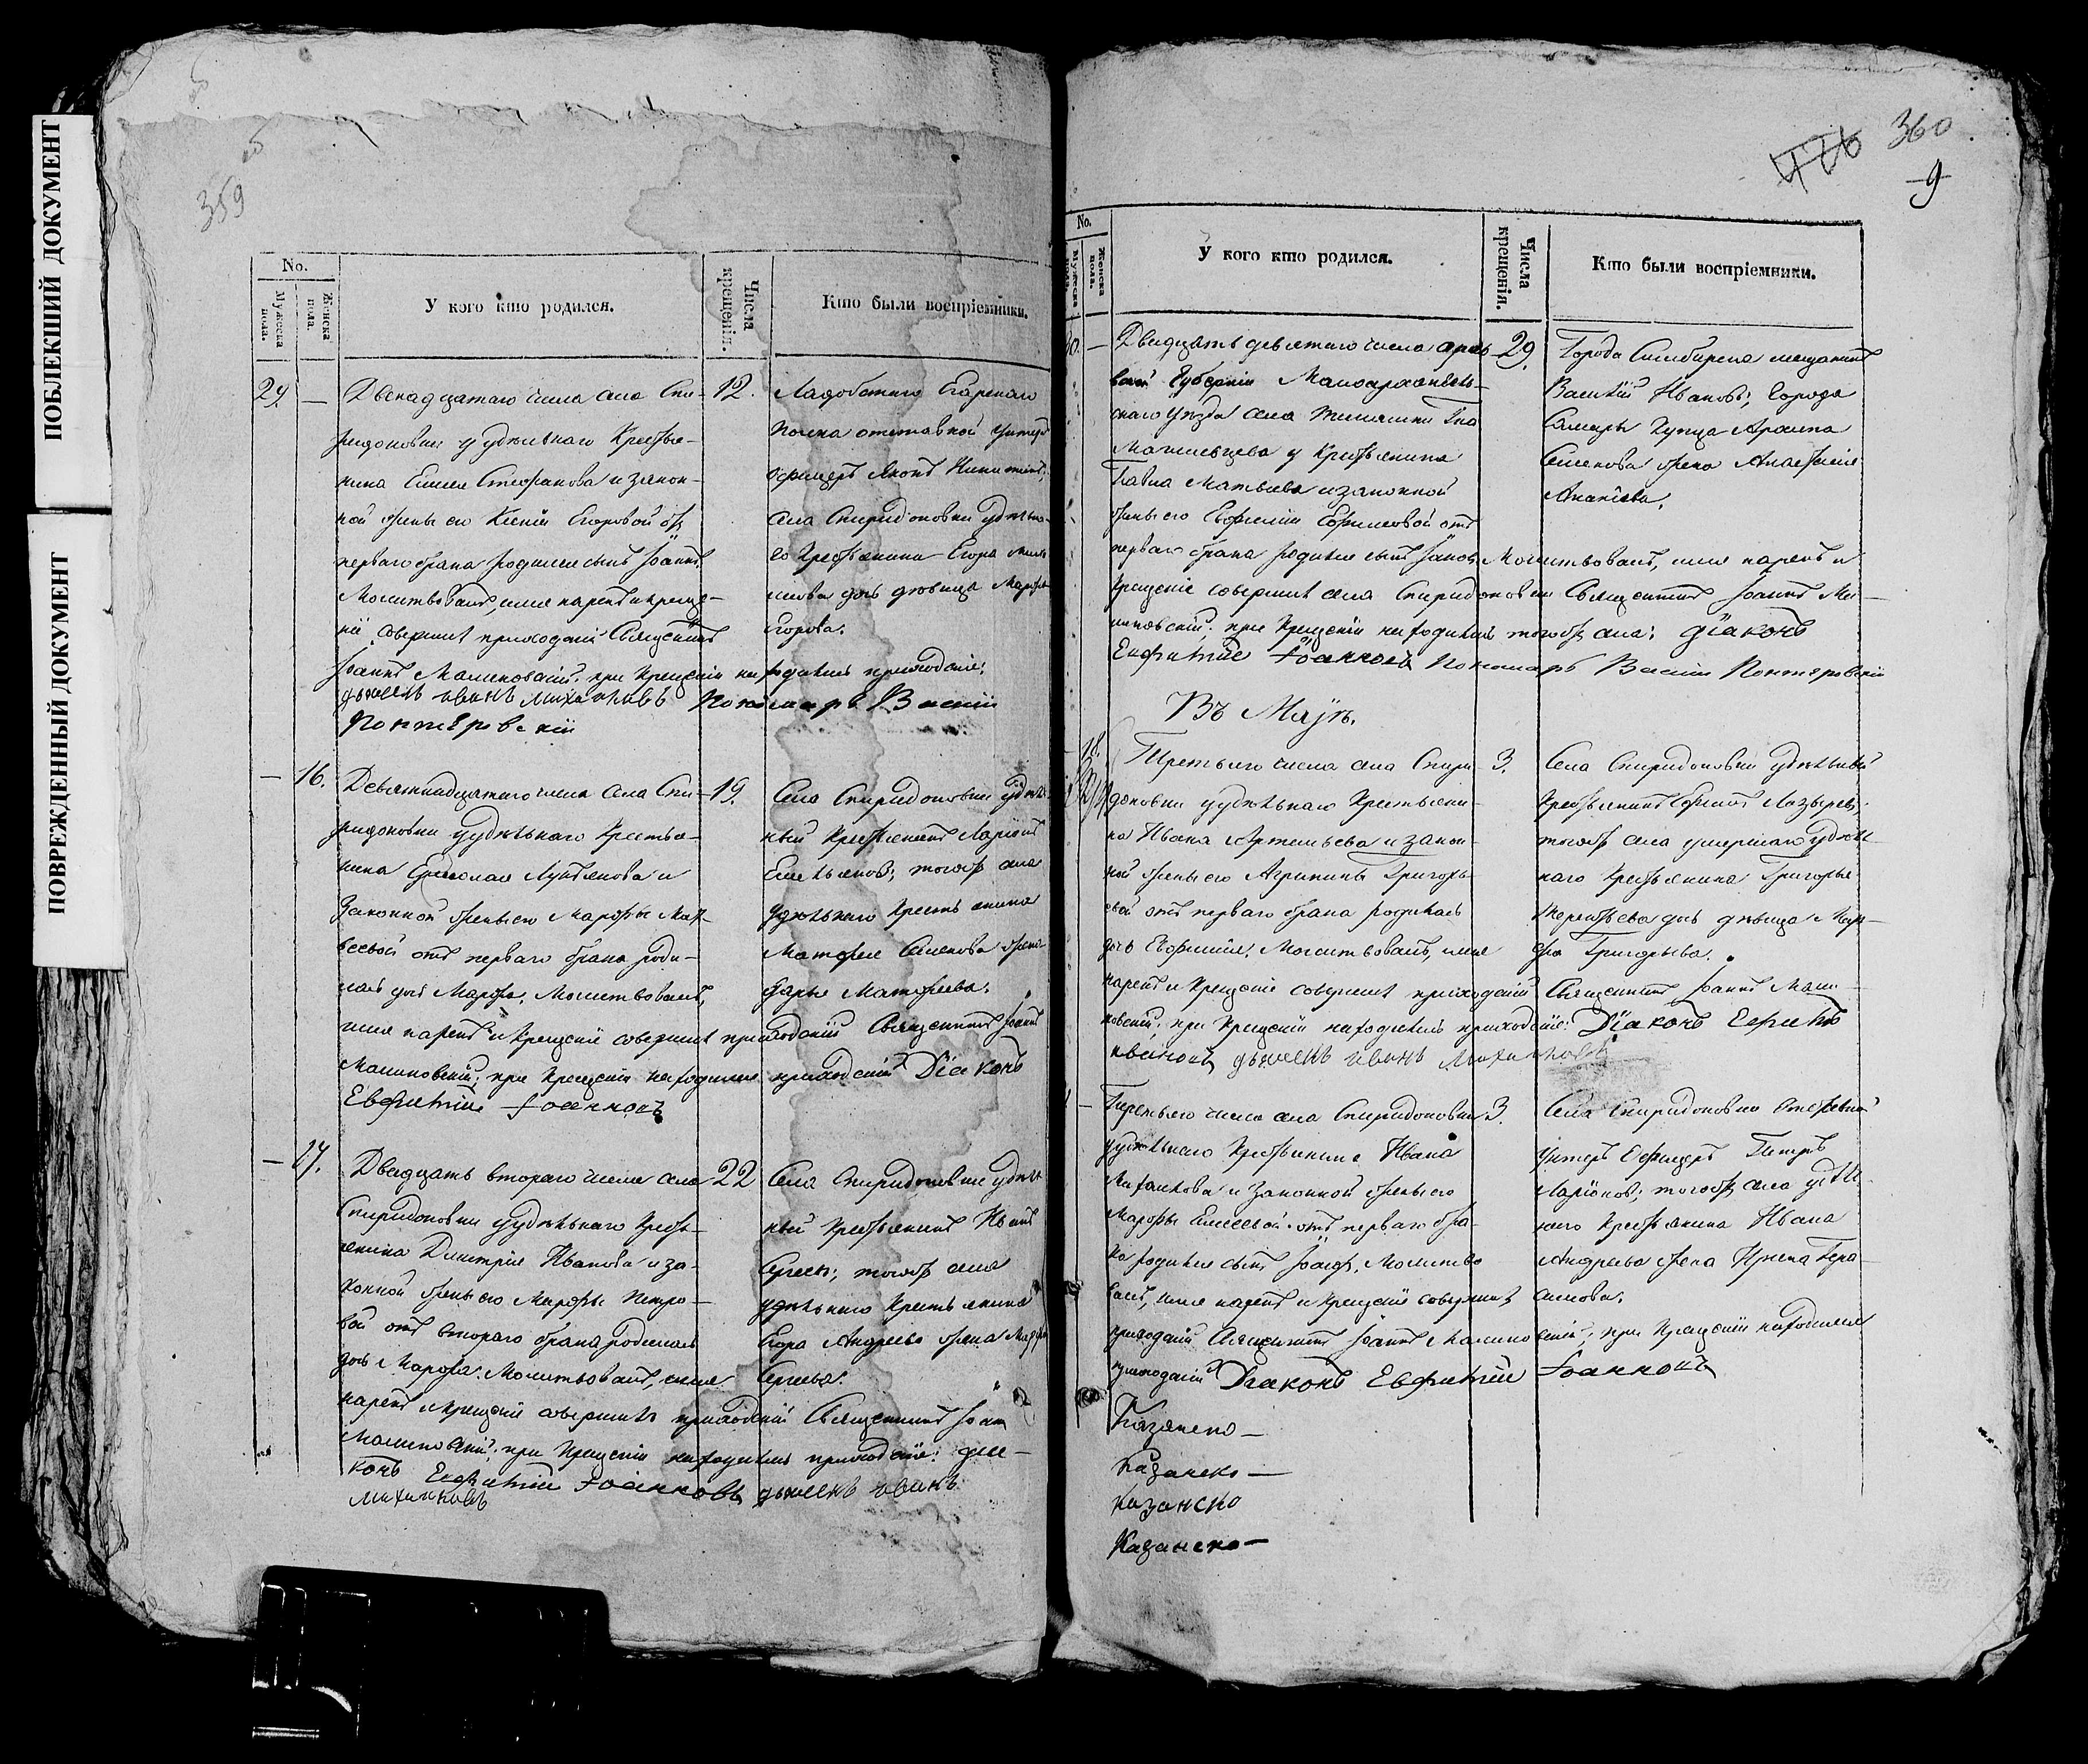 ПОБЛЕКШИЙ ДОКУМЕНТ
ПОВРЕЖДЕННЫЙ ДОКУМЕНТ
359
No.
Мужеска пола.
Женска пола.
У кого кто родился.
Числа крещенія.
Кто были воспріемники.
29. — Двенадцатаго числа села Спи-
ридоновки удѣльнаго Крестья-
нина Стефанова и закон-
ной жены его Ксеніи Егоровой отъ
перваго брака родился сынъ Іоаннъ.
Молитвовалъ, имя нарекъ и креще-
ніе совершилъ приходскій Священникъ
Іоаннъ Малиновскій. при Крещеніи находились приходскіе:
дьячекъ иванъ михайловъ Пономарь Василій
Понтеровскій
12.
полка отставной унтеръ
офицеръ Никитинъ;
села Спиридоновки удѣльна-
го Крестьянина Егора
дочь дѣвица Марфа
Егорова.
— 16. Девятнадцатаго числа села Спи-
ридоновки удѣльнаго Крестья-
нина Лукьянова и
законной жены его Марфы Мат-
веевой отъ перваго брака роди-
лась дочь Марфа. Молитвовалъ,
имя нарекъ и Крещеніе совершилъ приходскій Священникъ Іоаннъ
Малиновскій; при Крещеніи находился приходскій Діаконъ
Евфимій Іоанновъ
19.
Села Спиридоновки удѣль-
ный Крестьянинъ Ларіонъ
Емельяновъ; тогожъ села
удѣльнаго Крестьянина
Матфея Семенова жена
Дарья Матфеева.
— 17. Двадцать втораго числа села
Спиридоновки удѣльнаго Кресть-
янина Димитрія Иванова и за-
конной жены его Марфы Петро-
вой отъ втораго брака родилась
дочь Марфа. Молитвовалъ, имя
нарекъ и крещеніе совершилъ приходскій Священникъ Іоан
Малиновскій. при Крещеніи находились приходскіе: діа-
конъ Евфимій Іоанновъ дьячекъ иванъ
михайловъ
22
Села Спиридоновки удѣль
ный Крестьянинъ Иванъ
Сергеев; тогожъ села
удѣльнаго Крестьянина
Егора Андреева жена
Сергеева.
360
9
No.
Мужеска пола.
Женска пола.
У кого кто родился.
Числа крещенія.
Кто были воспріемники.
30. — Двадцать девятаго числа
Губерніи Малоархангель-
скаго уѣзда села
у Крестьянина
Павла Матвеева и законной
жены его Евфиміи Ефимовой отъ
перваго брака родился сынъ Іаковъ. Молитвовалъ, имя нарекъ и
Крещеніе совершилъ села Спиридоновки Священникъ Іоаннъ Ма-
линовскій. при Крещеніи находились тогожъ села: діаконъ
Евфимій Іоанновъ Пономарь Василій Понтеровскій
29.
Города Симбирска мещанинъ
Василій Ивановъ; Города
Самары Купца
Семенова жена Анастасія
Ананіева.
Въ Маіѣ.
18. Третьяго числа села Спири-
доновки удѣльнаго Крестьяни-
на Ивана Артемьева и закон-
ной жены его Агрипины Григорь-
евой отъ перваго брака родилась
дочь Евфимія. Молитвовалъ, имя
нарекъ и Крещеніе совершилъ приходскій Священникъ Іоаннъ Мали-
новскій. при Крещеніи находились приходскіе: Діаконъ
дьячекъ иванъ михайловъ
3.
Села Спиридоновки удѣльный
Крестьянинъ
тогожъ села умершаго удѣль-
наго Крестьянина Григорья
Терентьева дочь дѣвица Мар-
фа Григорьева.
Третьяго числа села Спиридоновки
удѣльнаго Крестьянина Ивана
Михайлова и законной жены его
Марфы Елисеевой отъ перваго бра-
ка родился сынъ Іосифъ. Молитво
валъ, имя нарекъ и Крещеніе совершилъ
приходскій Священникъ Іоаннъ Малиновскій; при Крещеніи находился
приходскій Діаконъ Евфимій Іоанновъ
3.
Села Спиридоновки отставной
унтеръ Офицеръ Петръ
Ларіоновъ; тогожъ села удѣль-
наго Крестьянина Ивана
Андреева жена Ирина Гера-
симова.
Казанско —
Казанско —
Казанско
Казанско —